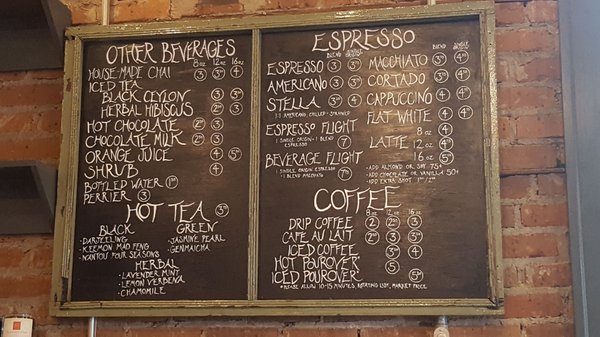 OTHER BEVERAGES
8oz 12oz 16oz
HOUSE-MADE CHAI 3 3 4
ICED TEA
BLACK CEYLON 2 3
HERBAL HIBISCUS 2 3
HOT CHOCOLATE 2 3
CHOCOLATE MILK 2 3
ORANGE JUICE 4 5
SHRUB 4
BOTTLED WATER 1
PERRIER 3
HOT TEA 3
BLACK
- DARJEELING
- KEEMUN MAO FENG
- NANTOU FOUR SEASONS
GREEN
- JASMINE PEARL
- GENMAICHA
HERBAL
- LAVENDER MINT
- LEMON VERBENA
- CHAMOMILE
ESPRESSO
BLEND SINGLE ORIGIN
ESPRESSO 3 3
AMERICANO 3 3
STELLA 3 4
ESPRESSO FLIGHT
1 SINGLE ORIGIN + 1 BLEND ESPRESSO 7
BEVERAGE FLIGHT
1 SINGLE ORIGIN ESPRESSO
1 BLEND MACCHIATO 7
BLEND SINGLE ORIGIN
MACCHIATO 3 4
CORTADO 3 4
CAPPUCCINO 4 4
FLAT WHITE 4 4
LATTE
8 oz 4
12 oz 4
16 oz 5
- ADD ALMOND OR SOY .75¢
- ADD CHOCOLATE OR VANILLA .50¢
- ADD EXTRA SHOT
COFFEE
8oz 12oz 16oz
DRIP COFFEE 2 2 3
CAFE AU LAIT 2 3 3
ICED COFFEE 3 4
HOT POUROVER 5
ICED POUROVER 5
*PLEASE ALLOW 10-15 MINUTES, ROTATING LIST, MARKET PRICE